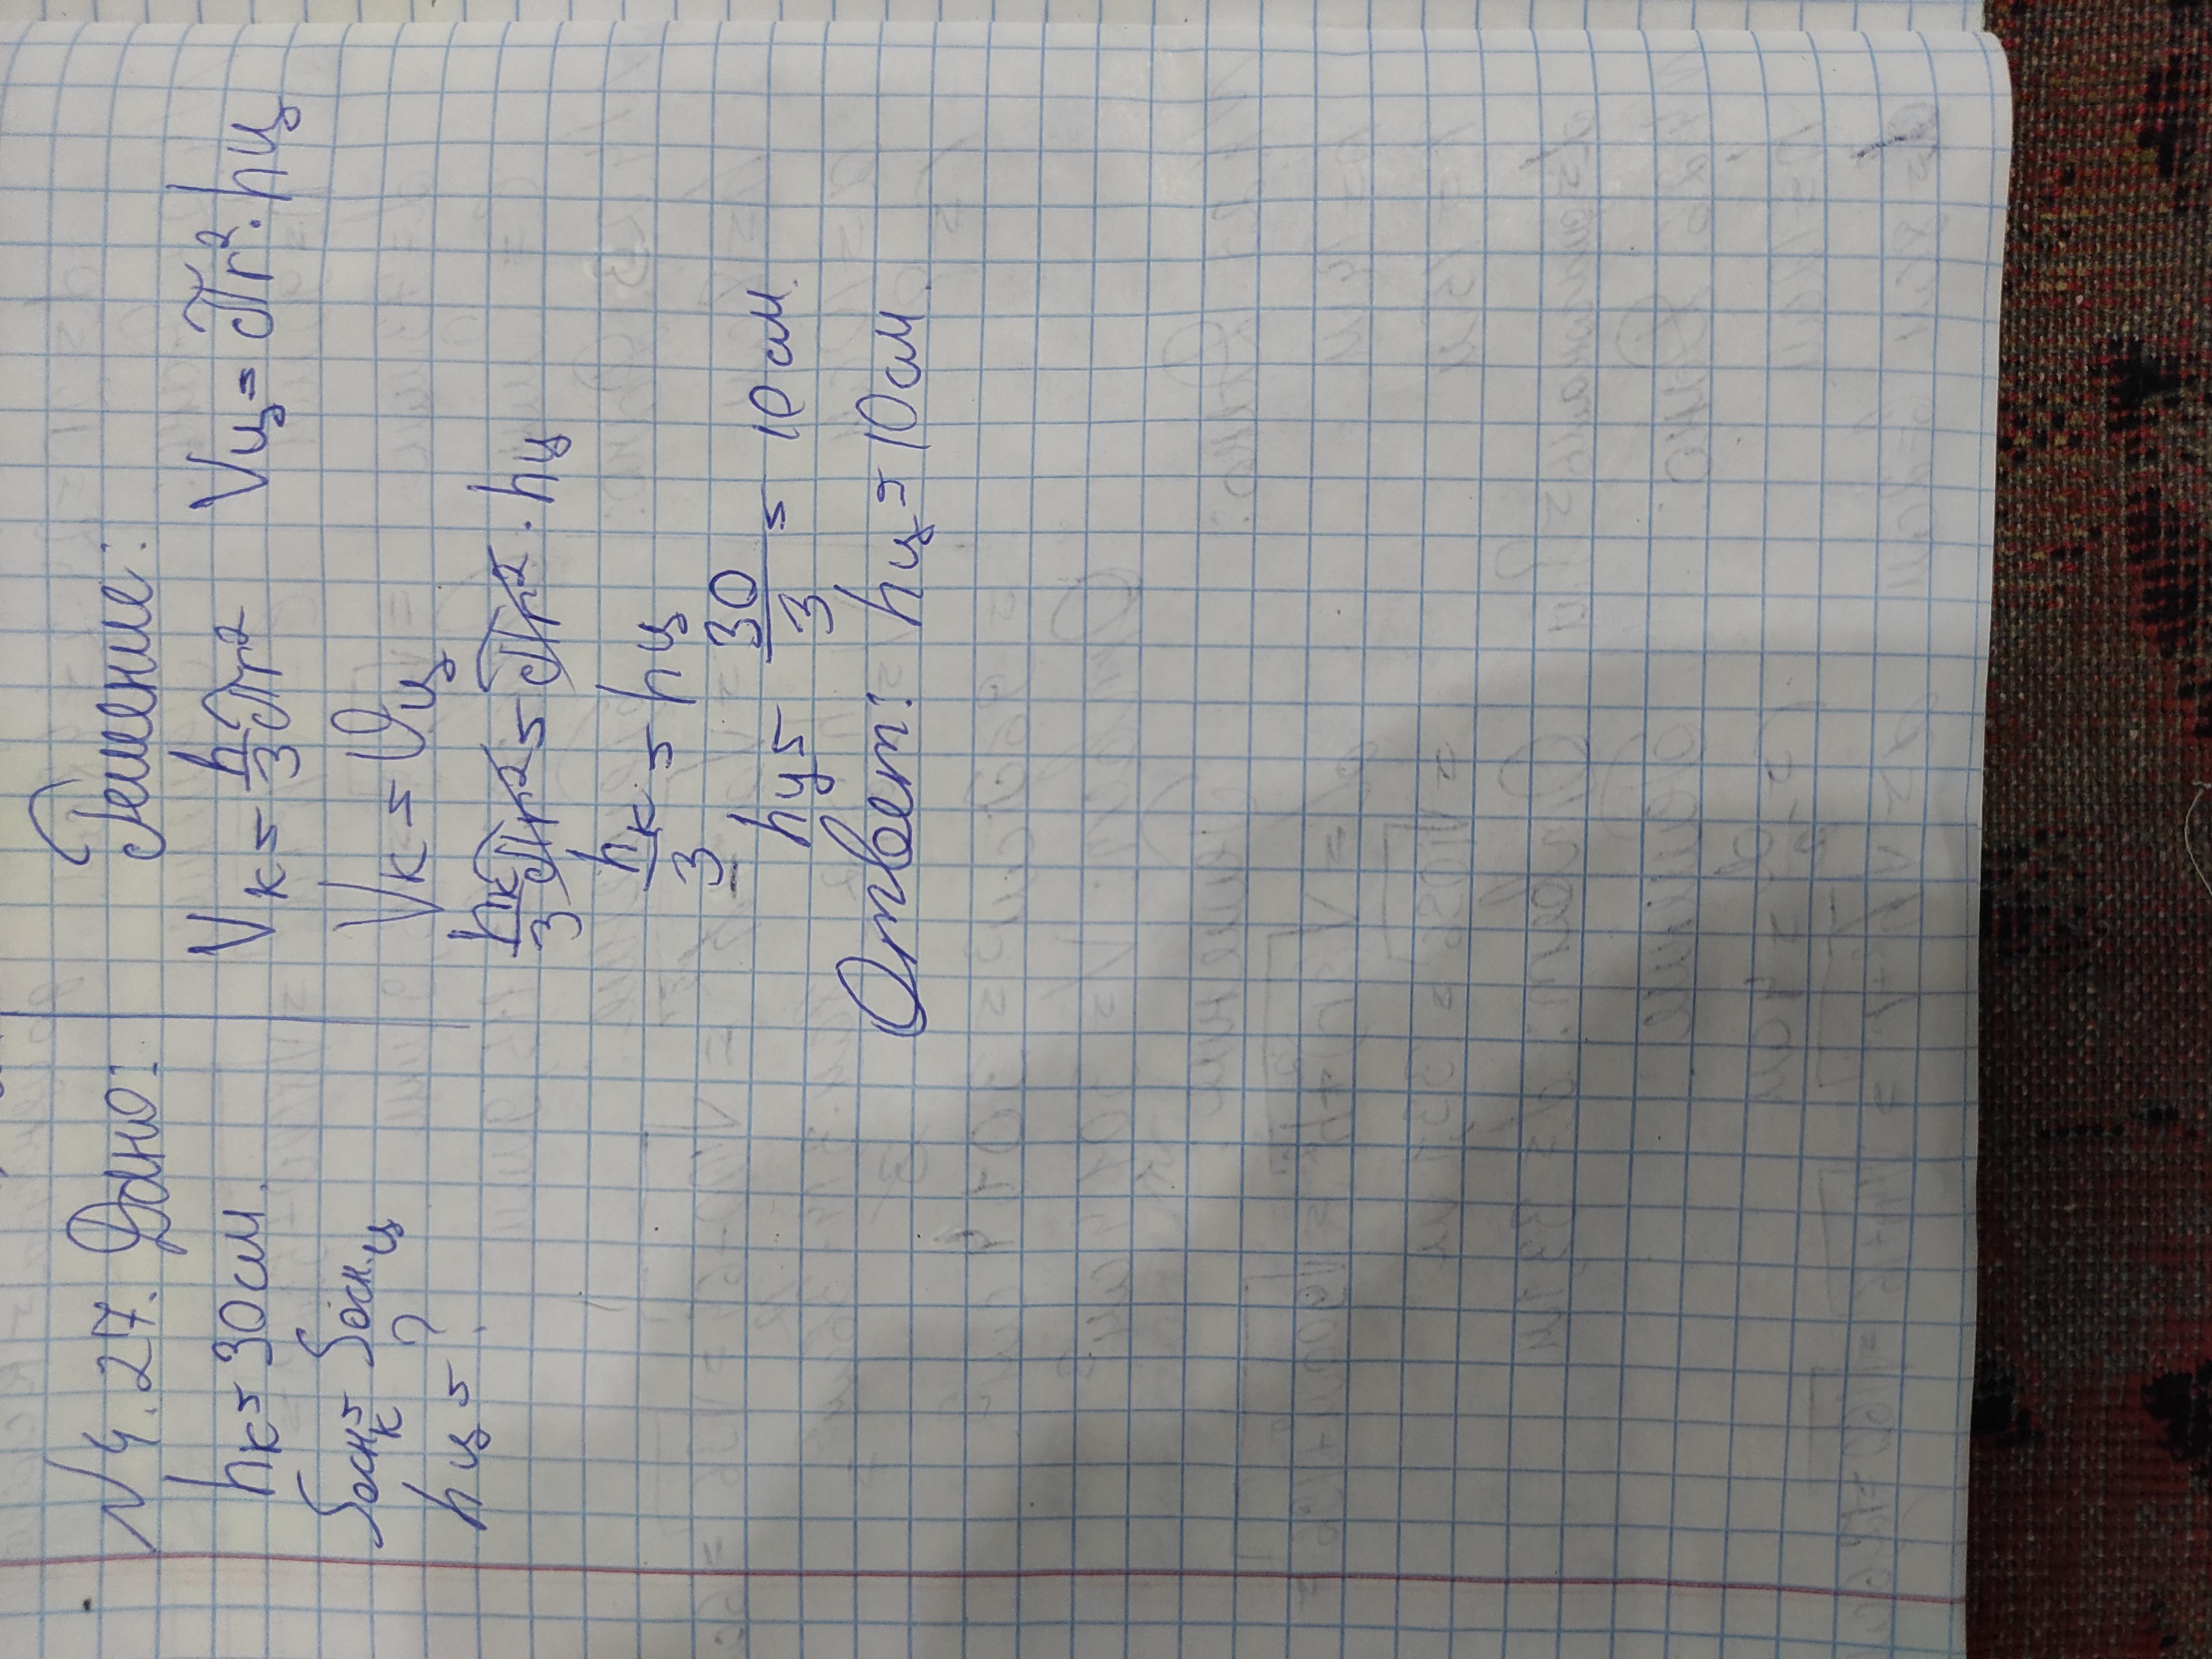 N 4.27. Дано:
hк = 30 см.
Sоснк = Sосн.ц
hц = ?
Решение:
Vк = h/3 πr² Vц = πr² · hц
Vк = Vц
hк/3 πr² = πr² · hц
hк/3 = hц
hц = 30/3 = 10 см.
Ответ: hц = 10 см